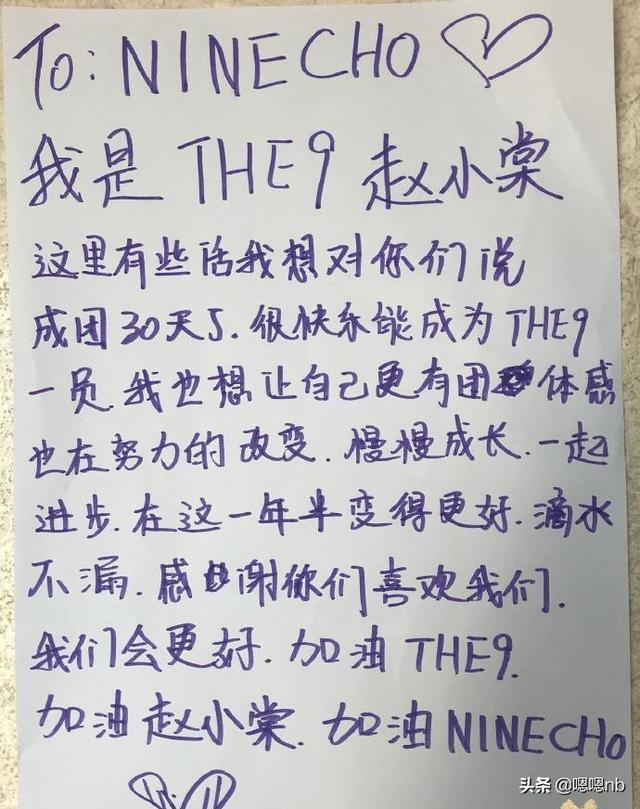 To: NINECHO
我是THE9 赵小棠
这里有些话我想对你们说
成团30天了. 很快乐能成为THE9
一员.我也想让自己更有团体感
也在努力的改变. 慢慢成长. 一起
进步. 在这一年半变得更好. 滴水
不漏. 感谢你们喜欢我们.
我们会更好. 加油THE9.
加油赵小棠. 加油NINECHO
头条 @嗯嗯nb